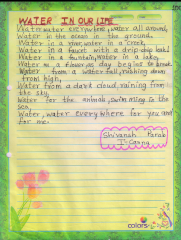 WATER IN OUR LIFE
Water water everywhere, water all around,
Water in the ocean in the ground.
Water in a river, water in a creek,
Water in a faucet with a drip drip leak!
Water in a fountain, water in a lake,
Water on a flower, as day begins to break.
Water from a waterfall, rushing down
from high,
Water from a dark cloud, raining from
the sky,
Water for the animals, swimming in the
sea,
Water, water everywhere for you and
for me.
Shivansh Parab
colors